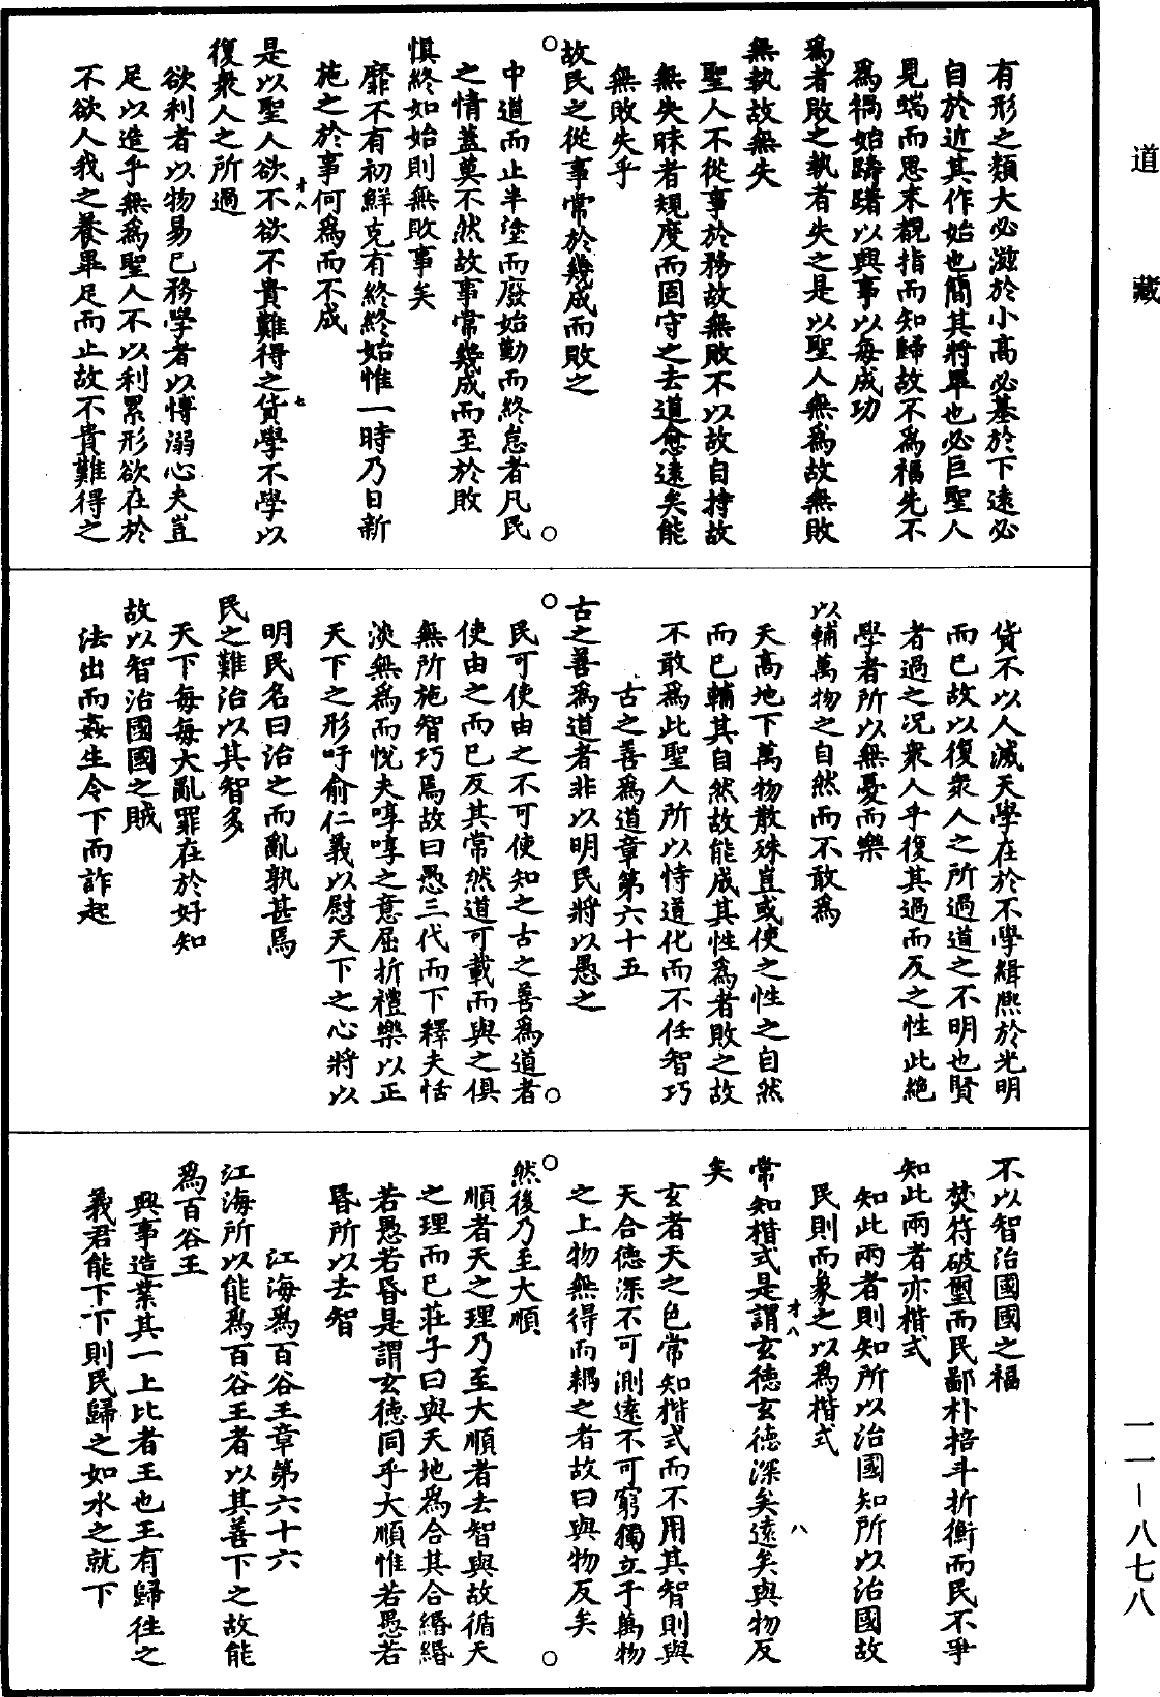 道藏
有形之類大必滋於小高必基於下遠必
自於近其作始也簡其將畢也必巨聖人
見端而思末覩指而知歸故不為福先不
為禍始躊躇以興事以每成功
為者敗之執者失之是以聖人無為故無敗
無執故無失
聖人不從事於務故無敗不以故自持故
無失昧者規度而固守之去道愈遠矣能
無敗失乎
故民之從事常於幾成而敗之
中道而止半塗而廢始勤而終怠者凡民
之情蓋莫不然故事常幾成而至於敗
慎終如始則無敗事矣
靡不有初鮮克有終終始惟一時乃日新
施之於事何為而不成
是以聖人欲不欲不貴難得之貨學不學以
復衆人之所過
欲利者以物易己務學者以博溺心夫豈
足以造乎無為聖人不以利累形欲在於
不欲人我之養畢足而止故不貴難得之
貨不以人滅天學在於不學緝熙於光明
而已故以復衆人之所過道之不明也賢
者過之况衆人乎復其過而反之性此絶
學者所以無憂而樂
以輔萬物之自然而不敢為
天高地下萬物散殊豈或使之性之自然
而已輔其自然故能成其性為者敗之故
不敢為此聖人所以恃道化而不任智巧
古之善為道章第六十五
古之善為道者非以明民將以愚之
民可使由之不可使知之古之善為道者
使由之而已反其常然道可載而與之俱
無所施智巧焉故曰愚三代而下釋夫恬
淡無為而悅夫啍啍之意屈折禮樂以正
天下之形吁俞仁義以慰天下之心將以
明民名曰治之而亂孰甚焉
民之難治以其智多
天下每每大亂罪在於好知
故以智治國國之賊
法出而姦生令下而詐起
不以智治國國之福
焚符破璽而民鄙朴掊斗折衡而民不爭
知此兩者亦楷式
知此兩者則知所以治國知所以治國故
民則而象之以為楷式
常知楷式是謂玄德玄德深矣遠矣與物反
矣
玄者天之色常知楷式而不用其智則與
天合德深不可測遠不可窮獨立于萬物
之上物無得而耦之者故曰與物反矣
然後乃至大順
順者天之理乃至大順者去智與故循天
之理而已莊子曰與天地為合其合緡緡
若愚若昏是謂玄德同乎大順惟若愚若
昏所以去智
江海為百谷王章第六十六
江海所以能為百谷王者以其善下之故能
為百谷王
興事造業其一上比者王也王有歸往之
義君能下下則民歸之如水之就下
一一—八七八